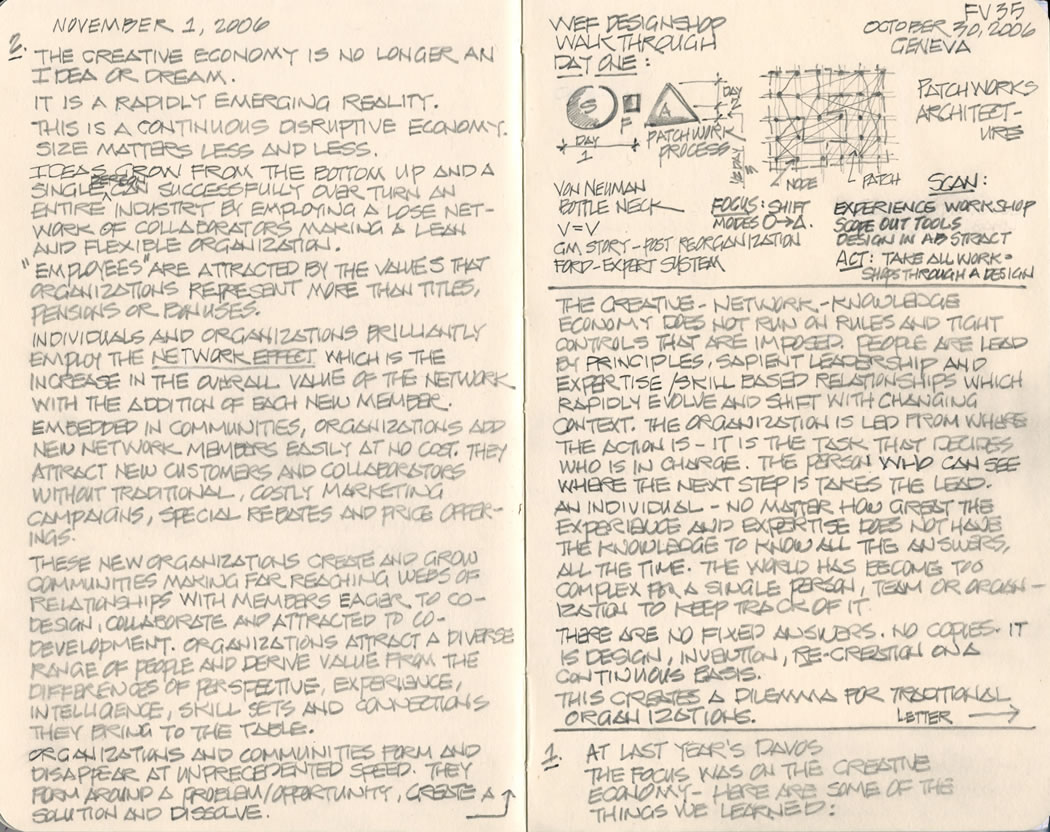 NOVEMBER 1, 2006
2. THE CREATIVE ECONOMY IS NO LONGER AN
IDEA OR DREAM.
IT IS A RAPIDLY EMERGING REALITY.
THIS IS A CONTINUOUS DISRUPTIVE ECONOMY.
SIZE MATTERS LESS AND LESS.
IDEAS GROW FROM THE BOTTOM UP AND A
SINGLE CAN SUCCESSFULLY OVER TURN AN
ENTIRE INDUSTRY BY EMPLOYING A LOSE NET-
WORK OF COLLABORATORS MAKING A LEAN
AND FLEXIBLE ORGANIZATION.
"EMPLOYEES" ARE ATTRACTED BY THE VALUES THAT
ORGANIZATIONS REPRESENT MORE THAN TITLES,
PENSIONS OR BONUSES.
INDIVIDUALS AND ORGANIZATIONS BRILLIANTLY
EMPLOY THE NETWORK EFFECT WHICH IS THE
INCREASE IN THE OVERALL VALUE OF THE NETWORK
WITH THE ADDITION OF EACH NEW MEMBER.
EMBEDDED IN COMMUNITIES, ORGANIZATIONS ADD
NEW NETWORK MEMBERS EASILY AT NO COST. THEY
ATTRACT NEW CUSTOMERS AND COLLABORATORS
WITHOUT TRADITIONAL, COSTLY MARKETING
CAMPAIGNS, SPECIAL REBATES AND PRICE OFFER-
INGS.
THESE NEW ORGANIZATIONS CREATE AND GROW
COMMUNITIES MAKING FAR REACHING WEBS OF
RELATIONSHIPS WITH MEMBERS EAGER TO CO-
DESIGN, COLLABORATE AND ATTRACTED TO CO-
DEVELOPMENT. ORGANIZATIONS ATTRACT A DIVERSE
RANGE OF PEOPLE AND DERIVE VALUE FROM THE
DIFFERENCES OF PERSPECTIVE, EXPERIENCE,
INTELLIGENCE, SKILL SETS AND CONNECTIONS
THEY BRING TO THE TABLE.
ORGANIZATIONS AND COMMUNITIES FORM AND
DISAPPEAR AT UNPRECEDENTED SPEED. THEY
FORM AROUND A PROBLEM/OPPORTUNITY, CREATE A
SOLUTION AND DISSOLVE.
FV 35
WEF DESIGNSHOP
WALK THROUGH
DAY ONE:
OCTOBER 30, 2006
GENEVA
S
F
A
DAY
2
DAY
1
PATCHWORK
PROCESS
DAY
NODE
PATCH
PATCHWORKS
ARCHITECT-
URE
VON NEUMAN
BOTTLE NECK
V=V
GM STORY - POST REORGANIZATION
FORD - EXPERT SYSTEM
FOCUS: SHIFT
MODES O→Δ.
SCAN:
EXPERIENCE WORKSHOP
SCOPE OUT TOOLS
DESIGN IN ABSTRACT
ACT: TAKE ALL WORK-
SHOPS THROUGH A DESIGN
THE CREATIVE - NETWORK - KNOWLEDGE
ECONOMY DOES NOT RUN ON RULES AND TIGHT
CONTROLS THAT ARE IMPOSED. PEOPLE ARE LEAD
BY PRINCIPLES, SAPIENT LEADERSHIP AND
EXPERTISE/SKILL BASED RELATIONSHIPS WHICH
RAPIDLY EVOLVE AND SHIFT WITH CHANGING
CONTEXT. THE ORGANIZATION IS LED FROM WHERE
THE ACTION IS - IT IS THE TASK THAT DECIDES
WHO IS IN CHARGE. THE PERSON WHO CAN SEE
WHERE THE NEXT STEP IS TAKES THE LEAD.
AN INDIVIDUAL - NO MATTER HOW GREAT THE
EXPERIENCE AND EXPERTISE DOES NOT HAVE
THE KNOWLEDGE TO KNOW ALL THE ANSWERS,
ALL THE TIME. THE WORLD HAS BECOME TOO
COMPLEX FOR A SINGLE PERSON, TEAM OR ORGAN-
IZATION TO KEEP TRACK OF IT.
THERE ARE NO FIXED ANSWERS. NO COPIES. IT
IS DESIGN, INVENTION, RE-CREATION ON A
CONTINUOUS BASIS.
THIS CREATES A DILEMMA FOR TRADITIONAL
ORGANIZATIONS.
LETTER →
1. AT LAST YEAR'S DAVOS
THE FOCUS WAS ON THE CREATIVE
ECONOMY - HERE ARE SOME OF THE
THINGS WE LEARNED: